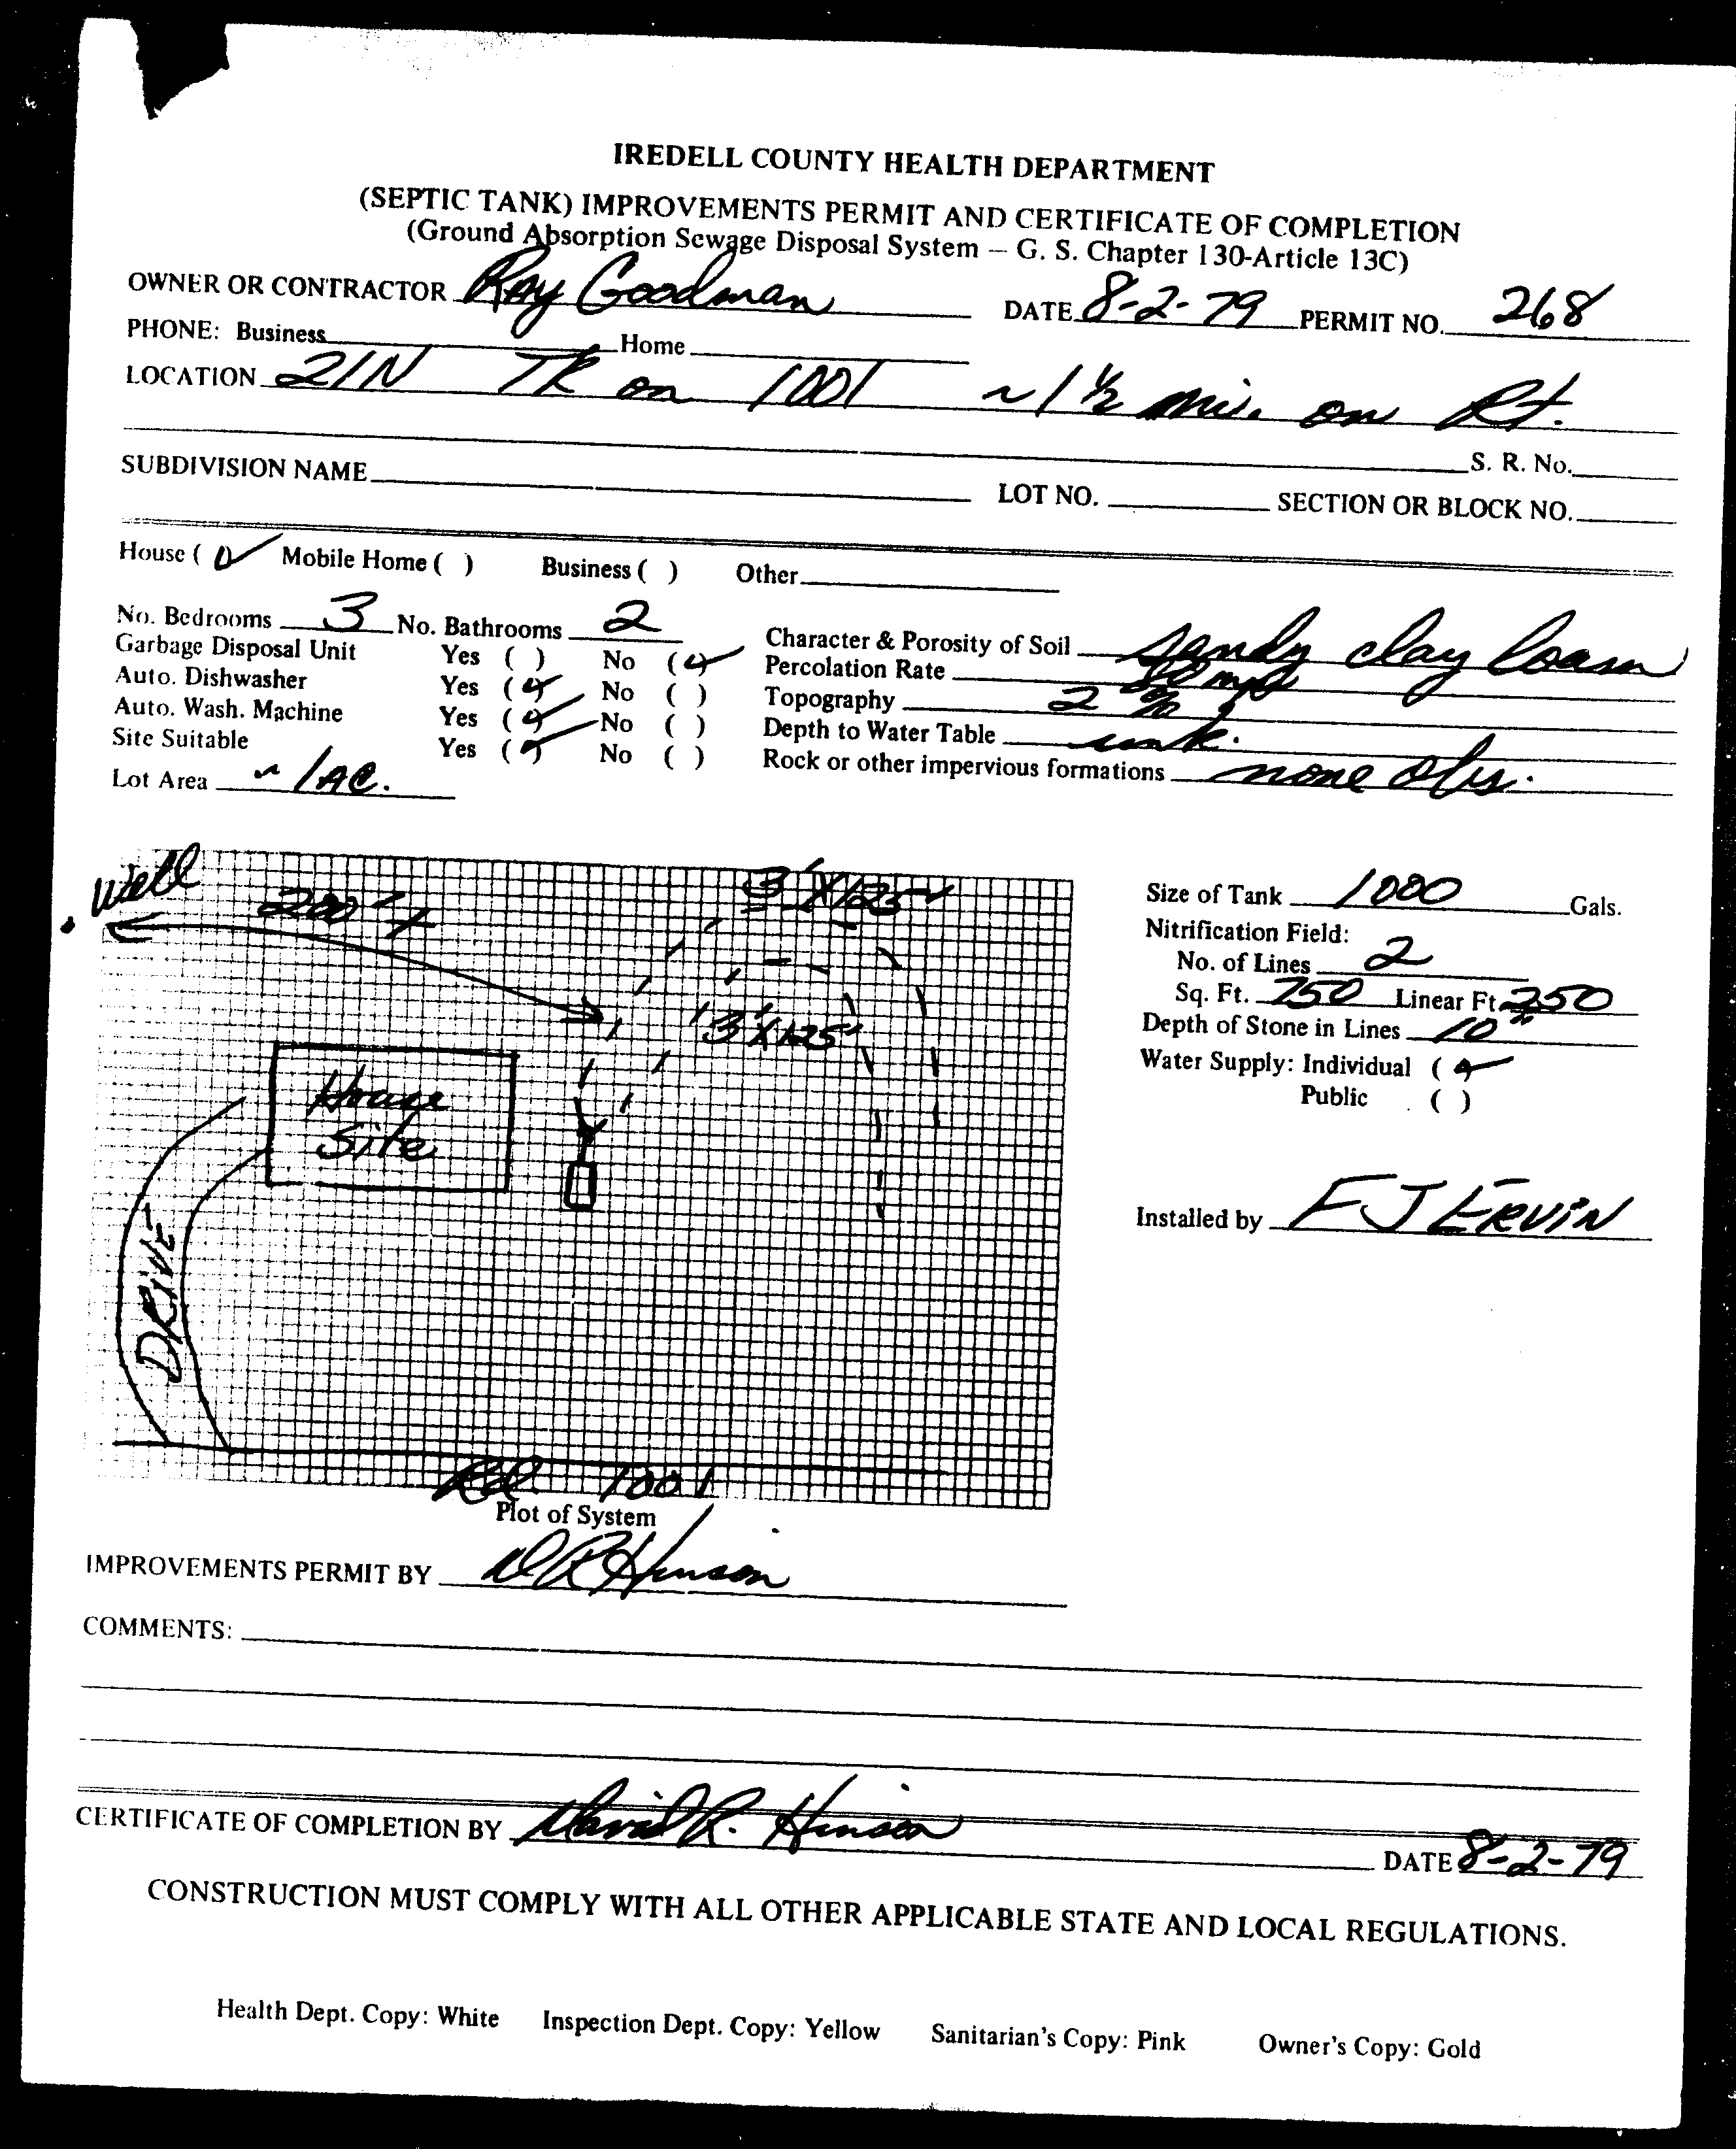 IREDELL COUNTY HEALTH DEPARTMENT
(SEPTIC TANK) IMPROVEMENTS PERMIT AND CERTIFICATE OF COMPLETION
(Ground Absorption Sewage Disposal System — G. S. Chapter 130-Article 13C)
OWNER OR CONTRACTOR Ray Goodman DATE 8-2-79 PERMIT NO. 268
PHONE: Business Home
LOCATION 21N TR on 1001 ~1 ½ mi. on Rt.
S. R. No.
SUBDIVISION NAME LOT NO. SECTION OR BLOCK NO.
House (✓) Mobile Home ( ) Business ( ) Other
No. Bedrooms 3 No. Bathrooms 2
Garbage Disposal Unit Yes ( ) No (✓)
Auto. Dishwasher Yes (✓) No ( )
Auto. Wash. Machine Yes (✓) No ( )
Site Suitable Yes (✓) No ( )
Lot Area ~ 1 AC.
Character & Porosity of Soil sandy clay loam
Percolation Rate
Topography 2 %
Depth to Water Table unk.
Rock or other impervious formations none obs.
well
200' ±
3' X 125'
3' X 125'
House
Site
DRIVE
Rd. 1001
Plot of System
Size of Tank 1000 Gals.
Nitrification Field:
No. of Lines 2
Sq. Ft. 750 Linear Ft. 250
Depth of Stone in Lines 10"
Water Supply: Individual (✓)
Public ( )
Installed by F J ERVIN
IMPROVEMENTS PERMIT BY D R Hinson
COMMENTS:
CERTIFICATE OF COMPLETION BY David R. Hinson
DATE 8-2-79
CONSTRUCTION MUST COMPLY WITH ALL OTHER APPLICABLE STATE AND LOCAL REGULATIONS.
Health Dept. Copy: White Inspection Dept. Copy: Yellow Sanitarian's Copy: Pink Owner's Copy: Gold